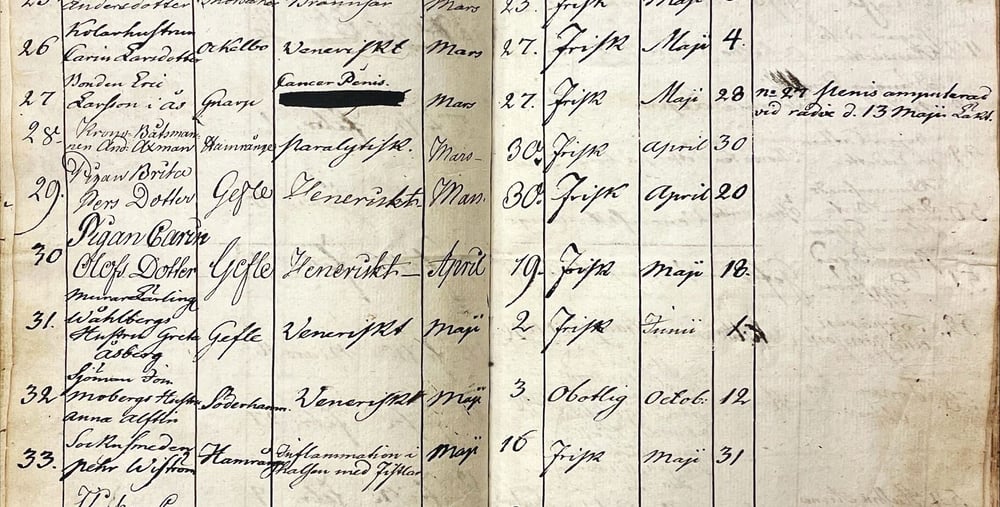 25. Andersdotter Brännsår Mars 23. Frisk Maji
Kolarhustrun
26 Carin Larsdotter Ockelbo Veneriskt Mars 27. Frisk Maji 4.
Bonden Eric Cancer Penis.
27 Larsson i Ås Gnarp Mars 27. Frisk Maji 28 no 27 Penis amputerad
vid radix d. 13 Maji
28 Krono Båtsman-
nen And. Axman Hamrånge Paralytisk. Mars- 30. Frisk April 30
Pigan Brita
29. Pers Dotter Gefle Veneriskt Mars. 30. Frisk April 20
Pigan Carin
30 Olofs Dotter Gefle Veneriskt April 19. Frisk Maji 18.
Murare Lärling
31. Wåhlbergs
Hustru Greta Gefle Veneriskt Maji 2 Frisk Junii
Åsberg
Sjöman
32 Mobergs Hustru Söderhamn. Veneriskt Maji 3. Obotlig Octob: 12
Anna
Sockensmeden Inflammation i
33. Pehr Wiström Hamrånge Halsen med Fistlar Maji 16 Frisk Maji 31